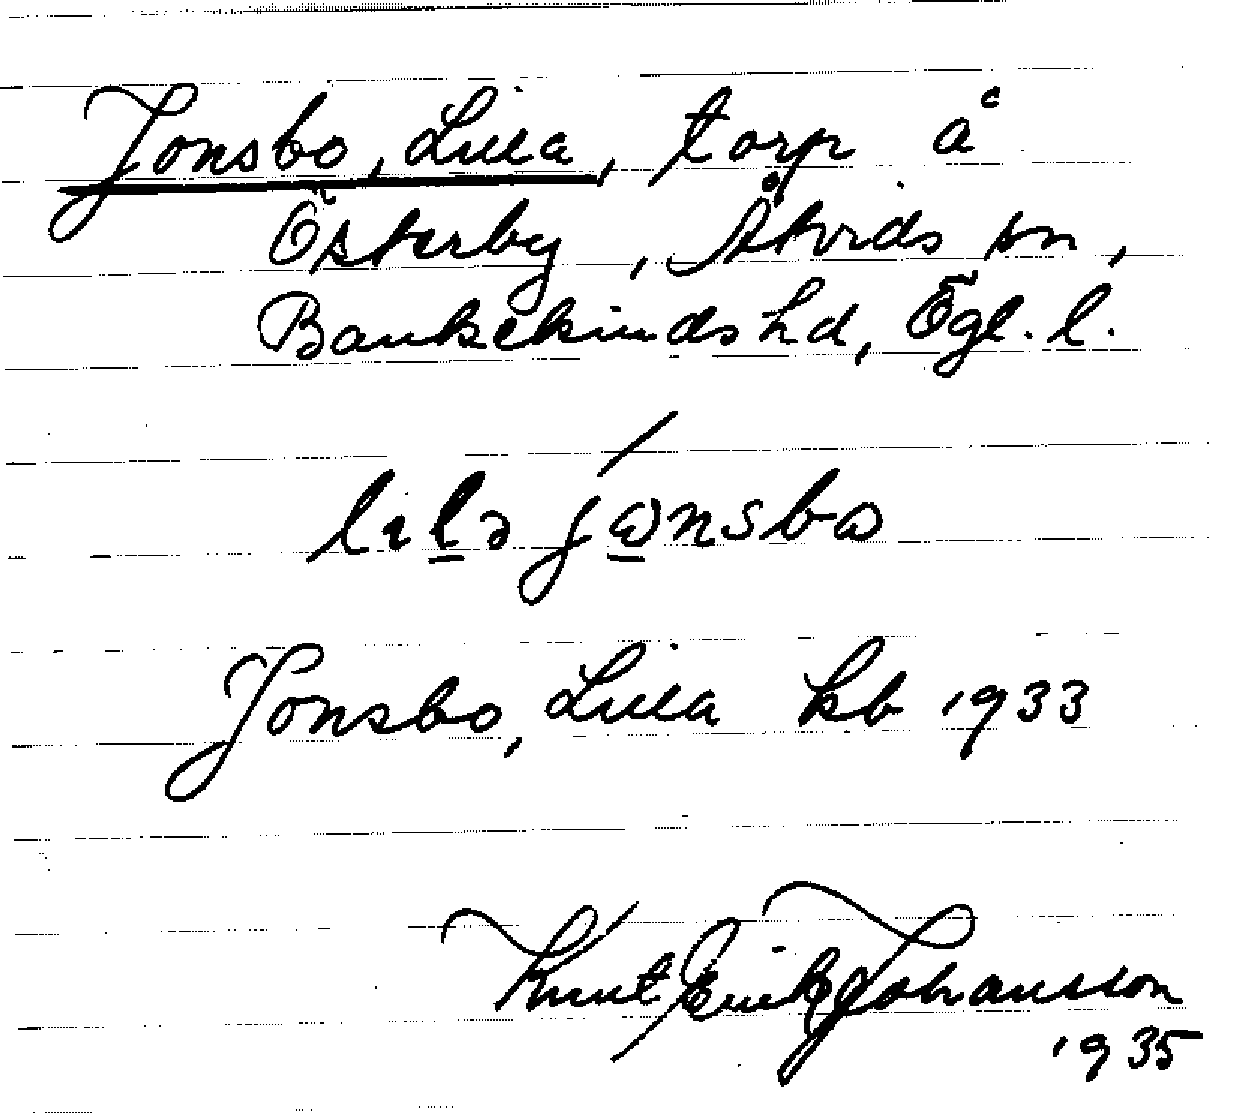 Jonsbo, Lilla, torp å
Österby, Åtvids sn,
Bankekinds hd, Ögl. l.
lɩlə jɷnsbɷ
Jonsbo, Lilla kb 1933
Knut Erik Johansson
1935